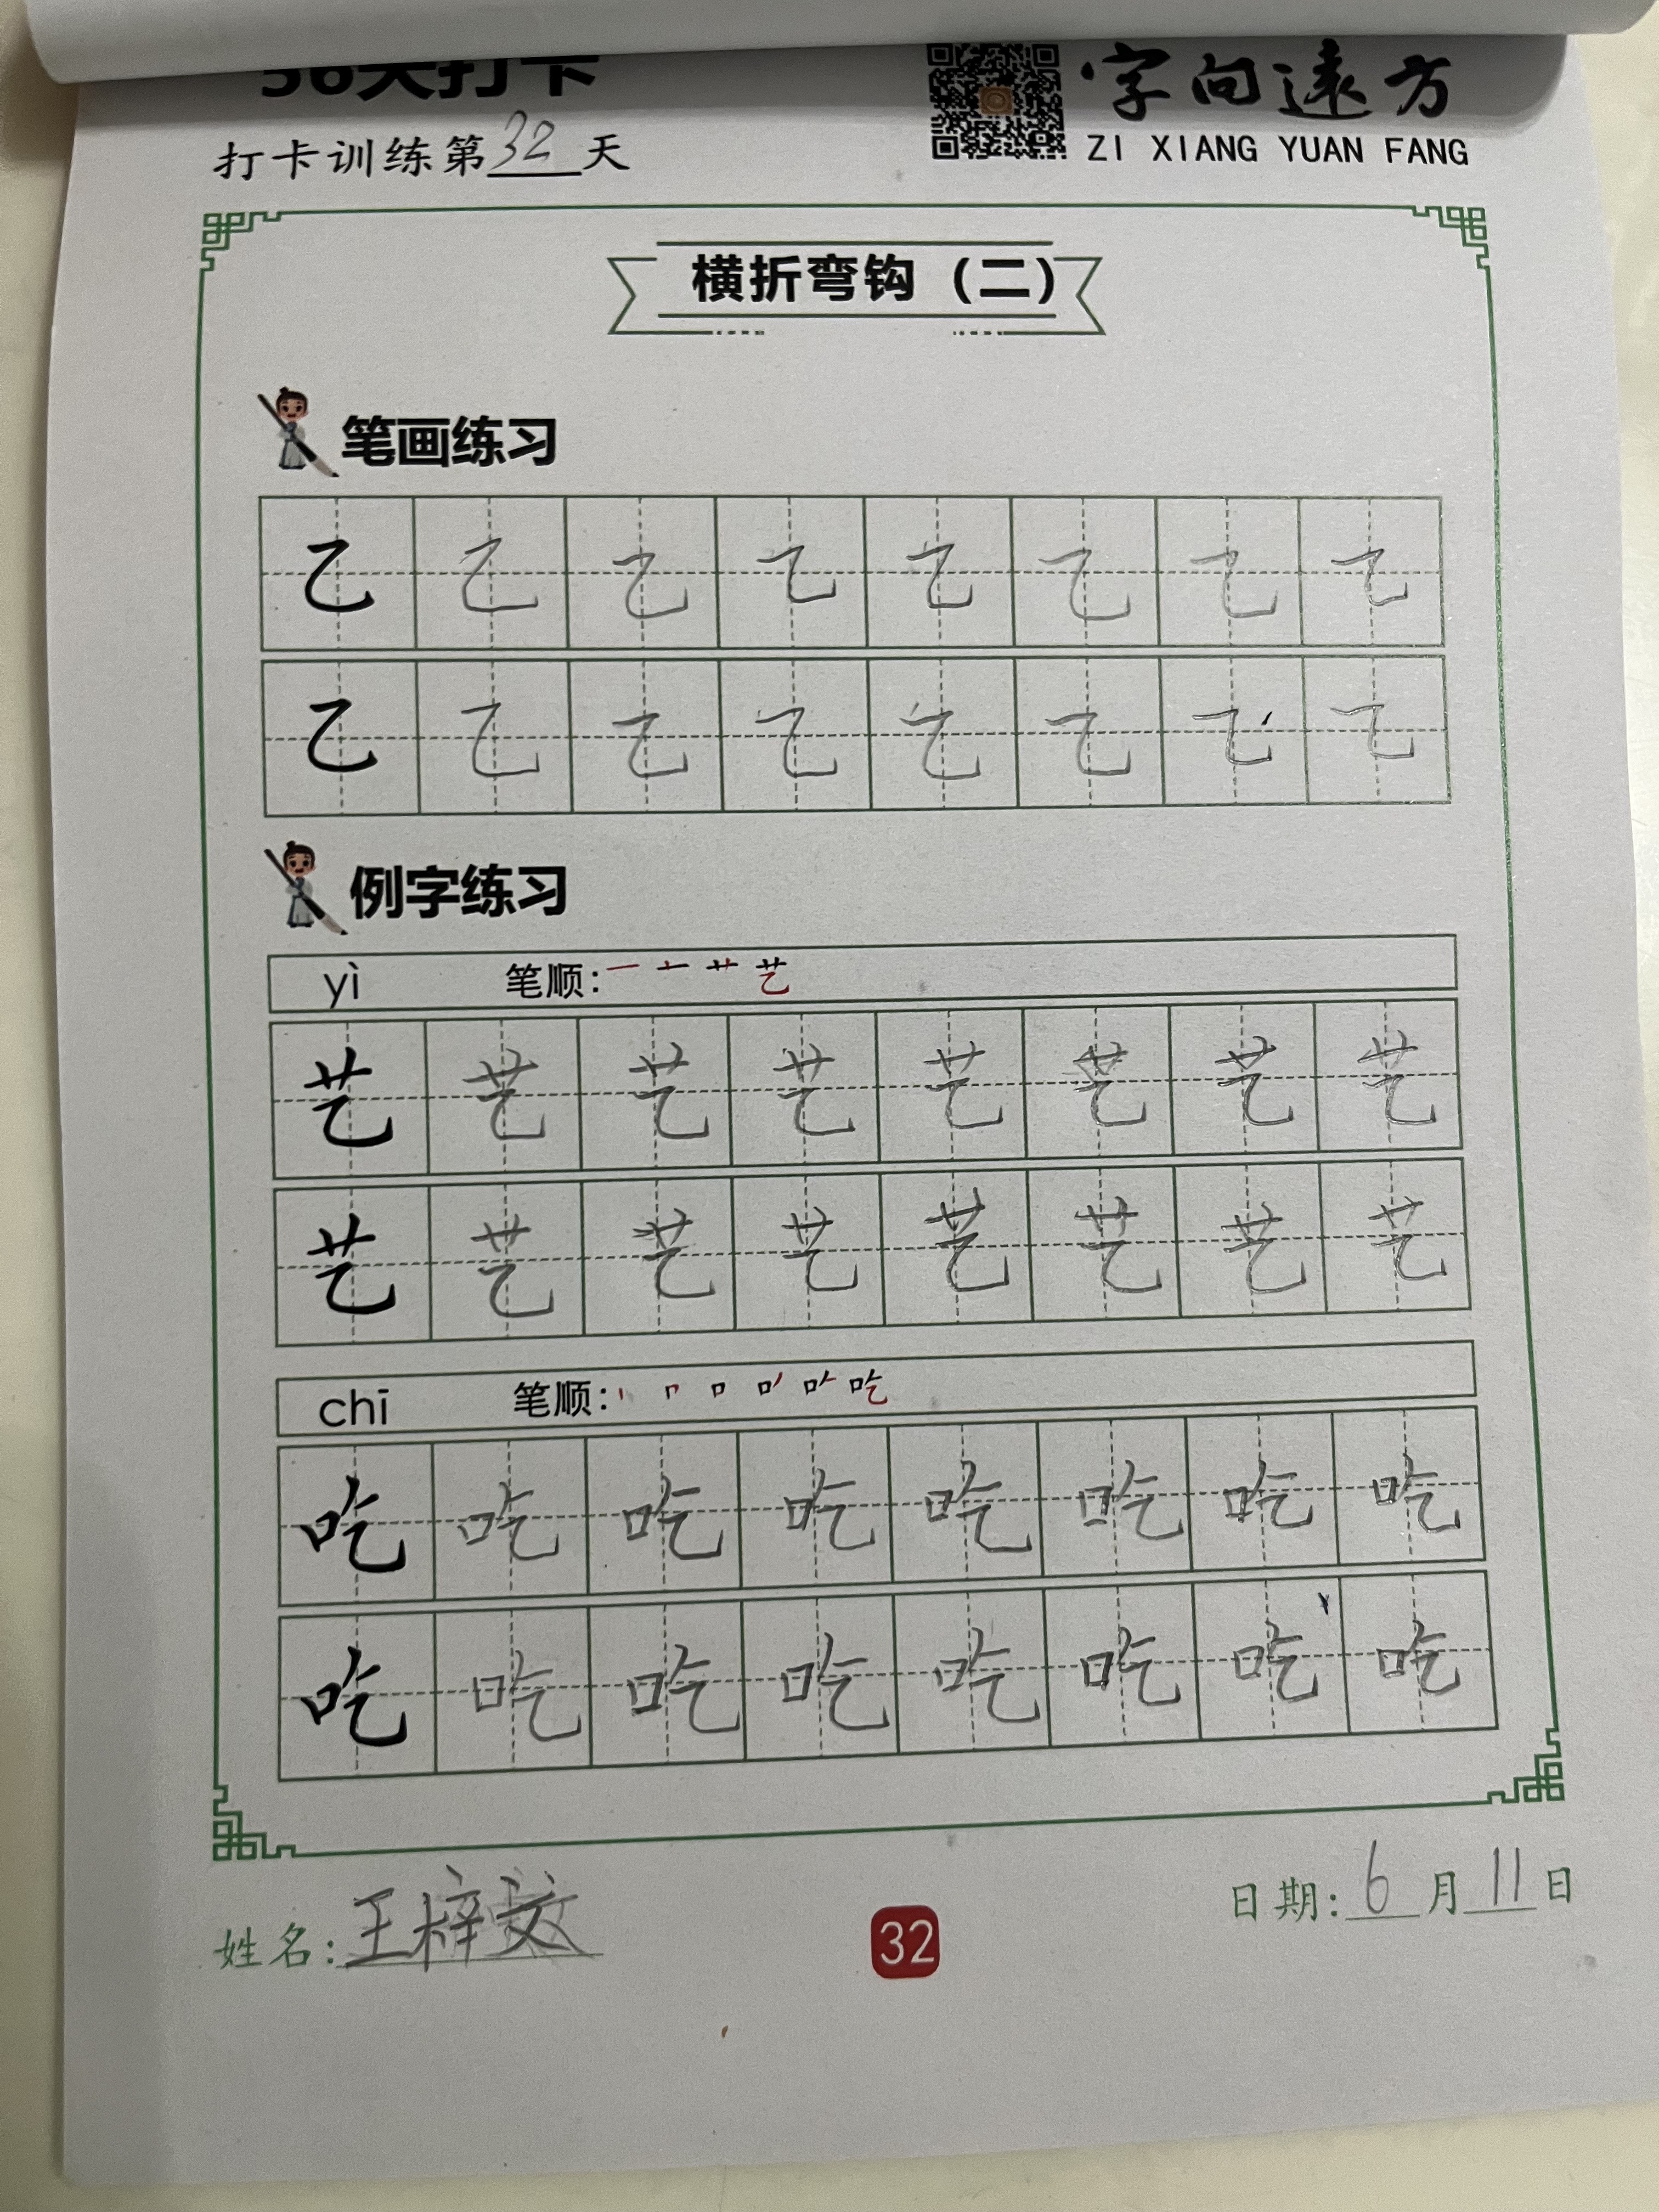 36天打卡
字向远方
ZI XIANG YUAN FANG
打卡训练第32天
横折弯钩（二）
笔画练习
乙 乙 乙 乙 乙 乙 乙 乙
乙 乙 乙 乙 乙 乙 乙 乙
例字练习
yì 笔顺: 艺
艺 艺 艺 艺 艺 艺 艺 艺
艺 艺 艺 艺 艺 艺 艺 艺
chī 笔顺: 吃
吃 吃 吃 吃 吃 吃 吃 吃
吃 吃 吃 吃 吃 吃 吃 吃
姓名: 王梓文
32
日期: 6月11日